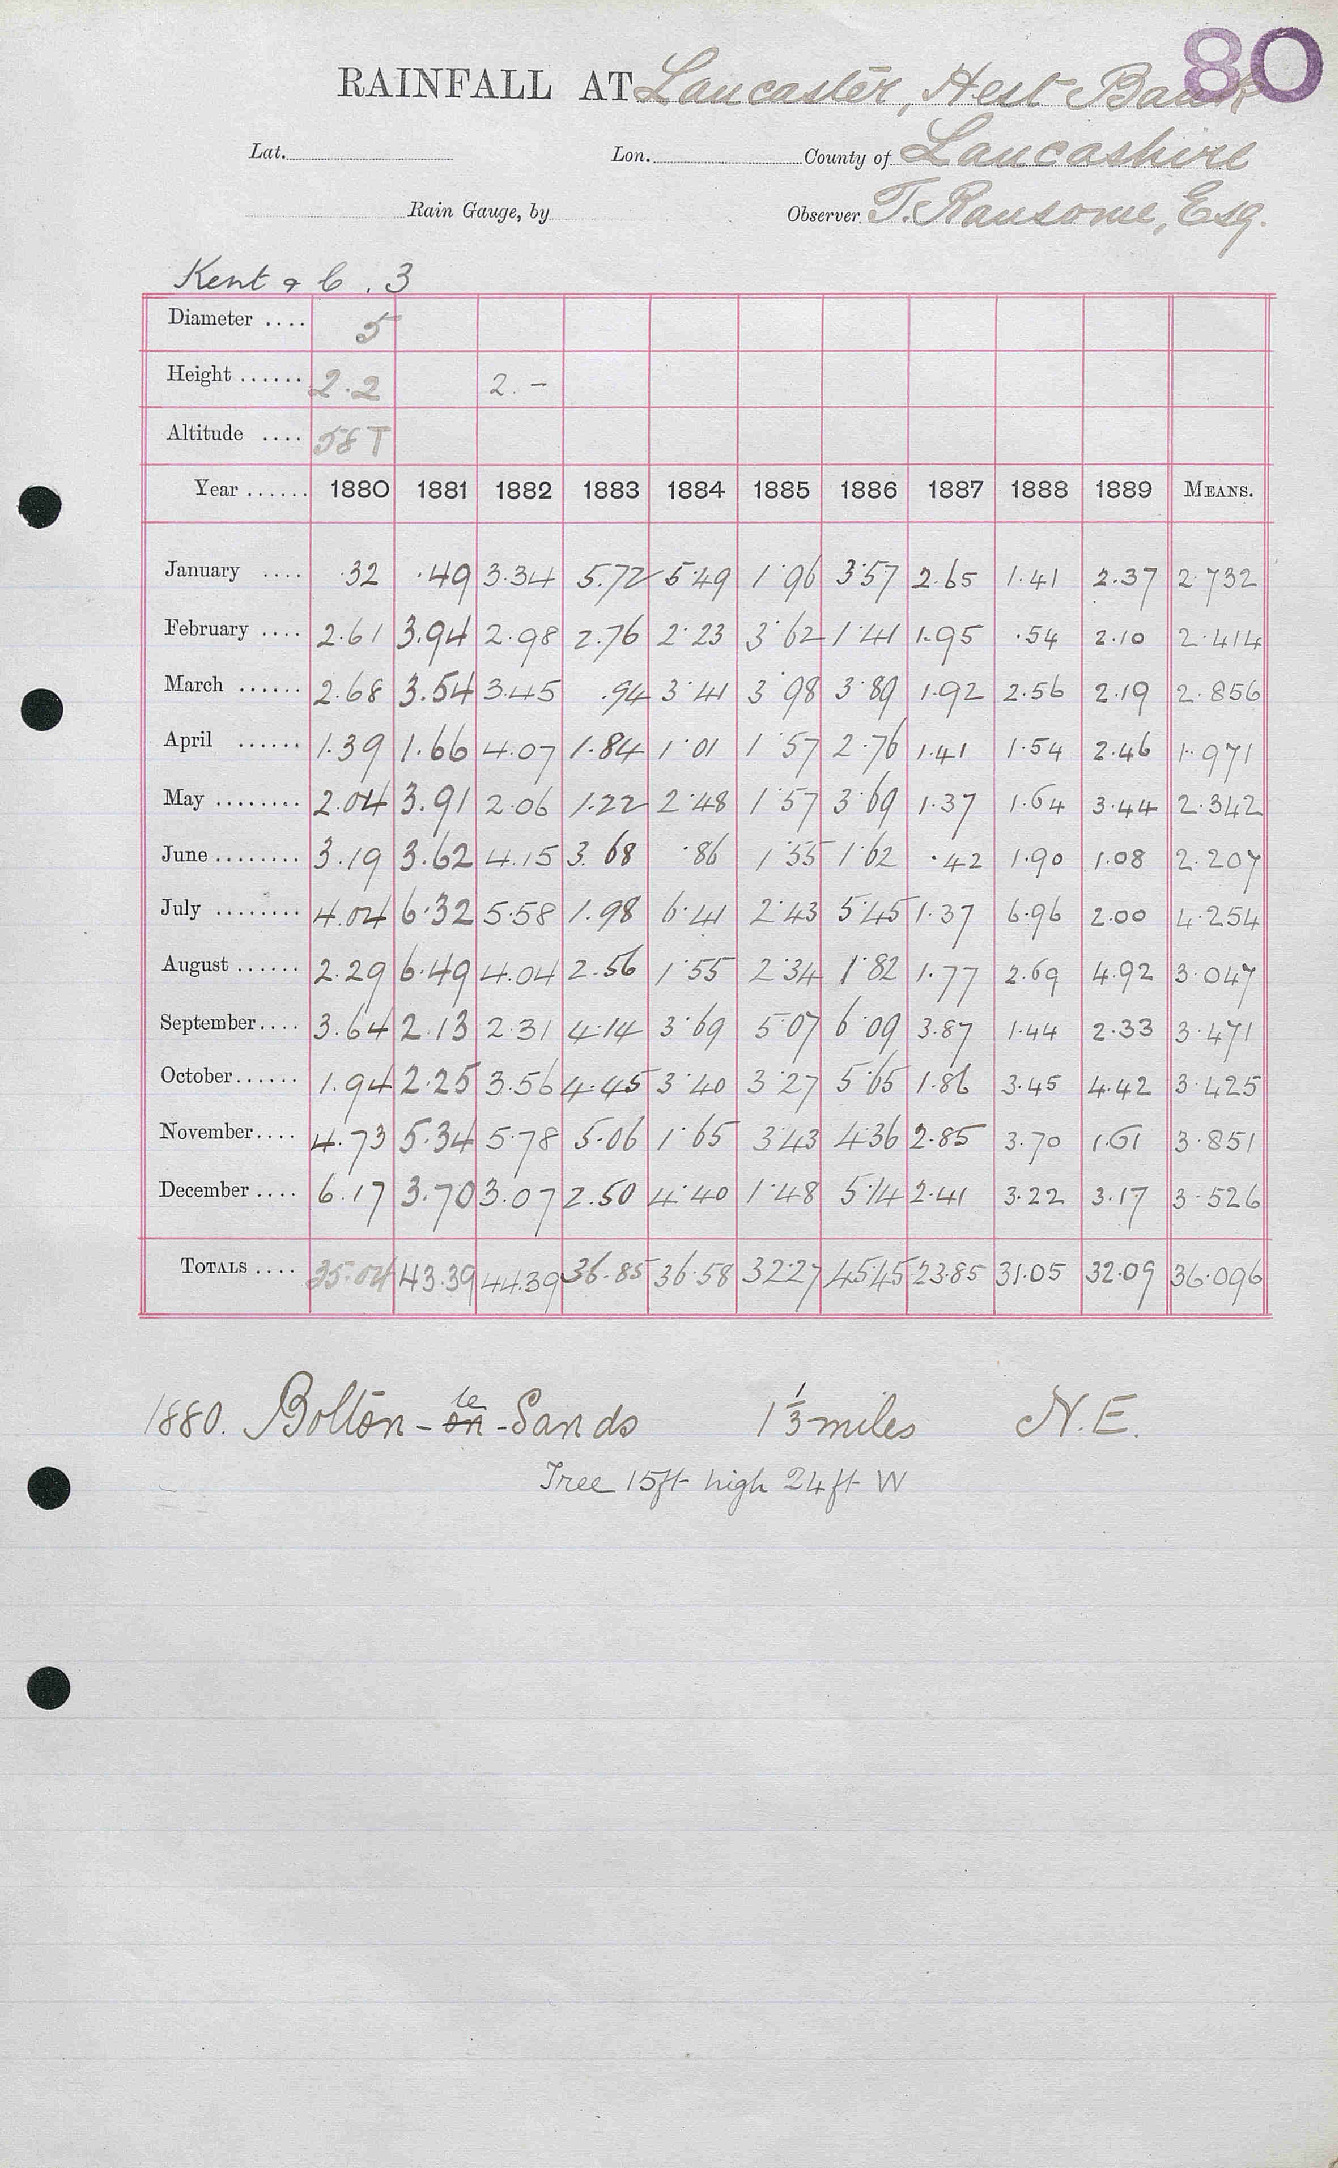 80
RAINFALL AT Lancaster, Hest Bank
Lat. Lon. County of Lancashire
Rain Gauge, by Observer T. Ransome, Esq.
Kent & C. 3
Diameter .... 5
Height ...... 2.2 2.-
Altitude .... 58 T
Year ...... 1880 1881 1882 1883 1884 1885 1886 1887 1888 1889 MEANS.
January .... .32 .49 3.34 5.72 5.49 1.96 3.57 2.65 1.41 2.37 2.732
February .... 2.61 3.94 2.98 2.76 2.23 3.62 1.41 1.95 .54 2.10 2.414
March ...... 2.68 3.54 3.45 .94 3.41 3.98 3.89 1.92 2.56 2.19 2.856
April ...... 1.39 1.66 4.07 1.84 1.01 1.57 2.76 1.41 1.54 2.46 1.971
May ........ 2.04 3.91 2.06 1.22 2.48 1.57 3.69 1.37 1.64 3.44 2.342
June ........ 3.19 3.62 4.15 3.68 .86 1.55 1.62 .42 1.90 1.08 2.207
July ........ 4.04 6.32 5.58 1.98 6.41 2.43 5.45 1.37 6.96 2.00 4.254
August ...... 2.29 6.49 4.04 2.56 1.55 2.34 1.82 1.77 2.69 4.92 3.047
September .... 3.64 2.13 2.31 4.14 3.69 5.07 6.09 3.87 1.44 2.33 3.471
October ...... 1.94 2.25 3.56 4.45 3.40 3.27 5.65 1.86 3.45 4.42 3.425
November .... 4.73 5.34 5.78 5.06 1.65 3.43 4.36 2.85 3.70 1.61 3.851
December .... 6.17 3.70 3.07 2.50 4.40 1.48 5.14 2.41 3.22 3.17 3.526
TOTALS .... 35.04 43.39 44.39 36.85 36.58 32.27 45.45 23.85 31.05 32.09 36.096
1880. Bolton-on le-Sands 1 1/3 miles N.E.
Tree 15ft high 24ft W